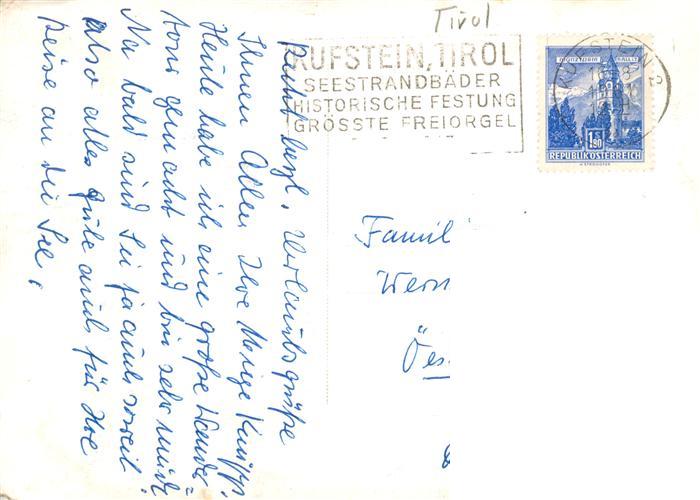 Tirol
KUFSTEIN, TIROL
SEESTRANDBÄDER
HISTORISCHE FESTUNG
GRÖSSTE FREIORGEL
KUFSTEIN 2
1.80
REPUBLIK ÖSTERREICH
Recht herzl. Urlaubsgrüße
Ihnen Allen Ihre
Heute habe ich eine große Wander=
tour gemacht und bin sehr müde
Na bald sind Sie ja auch soweit!
also alles gute auch für Ihre
Reise an die See.
Famil
Wern
Öes